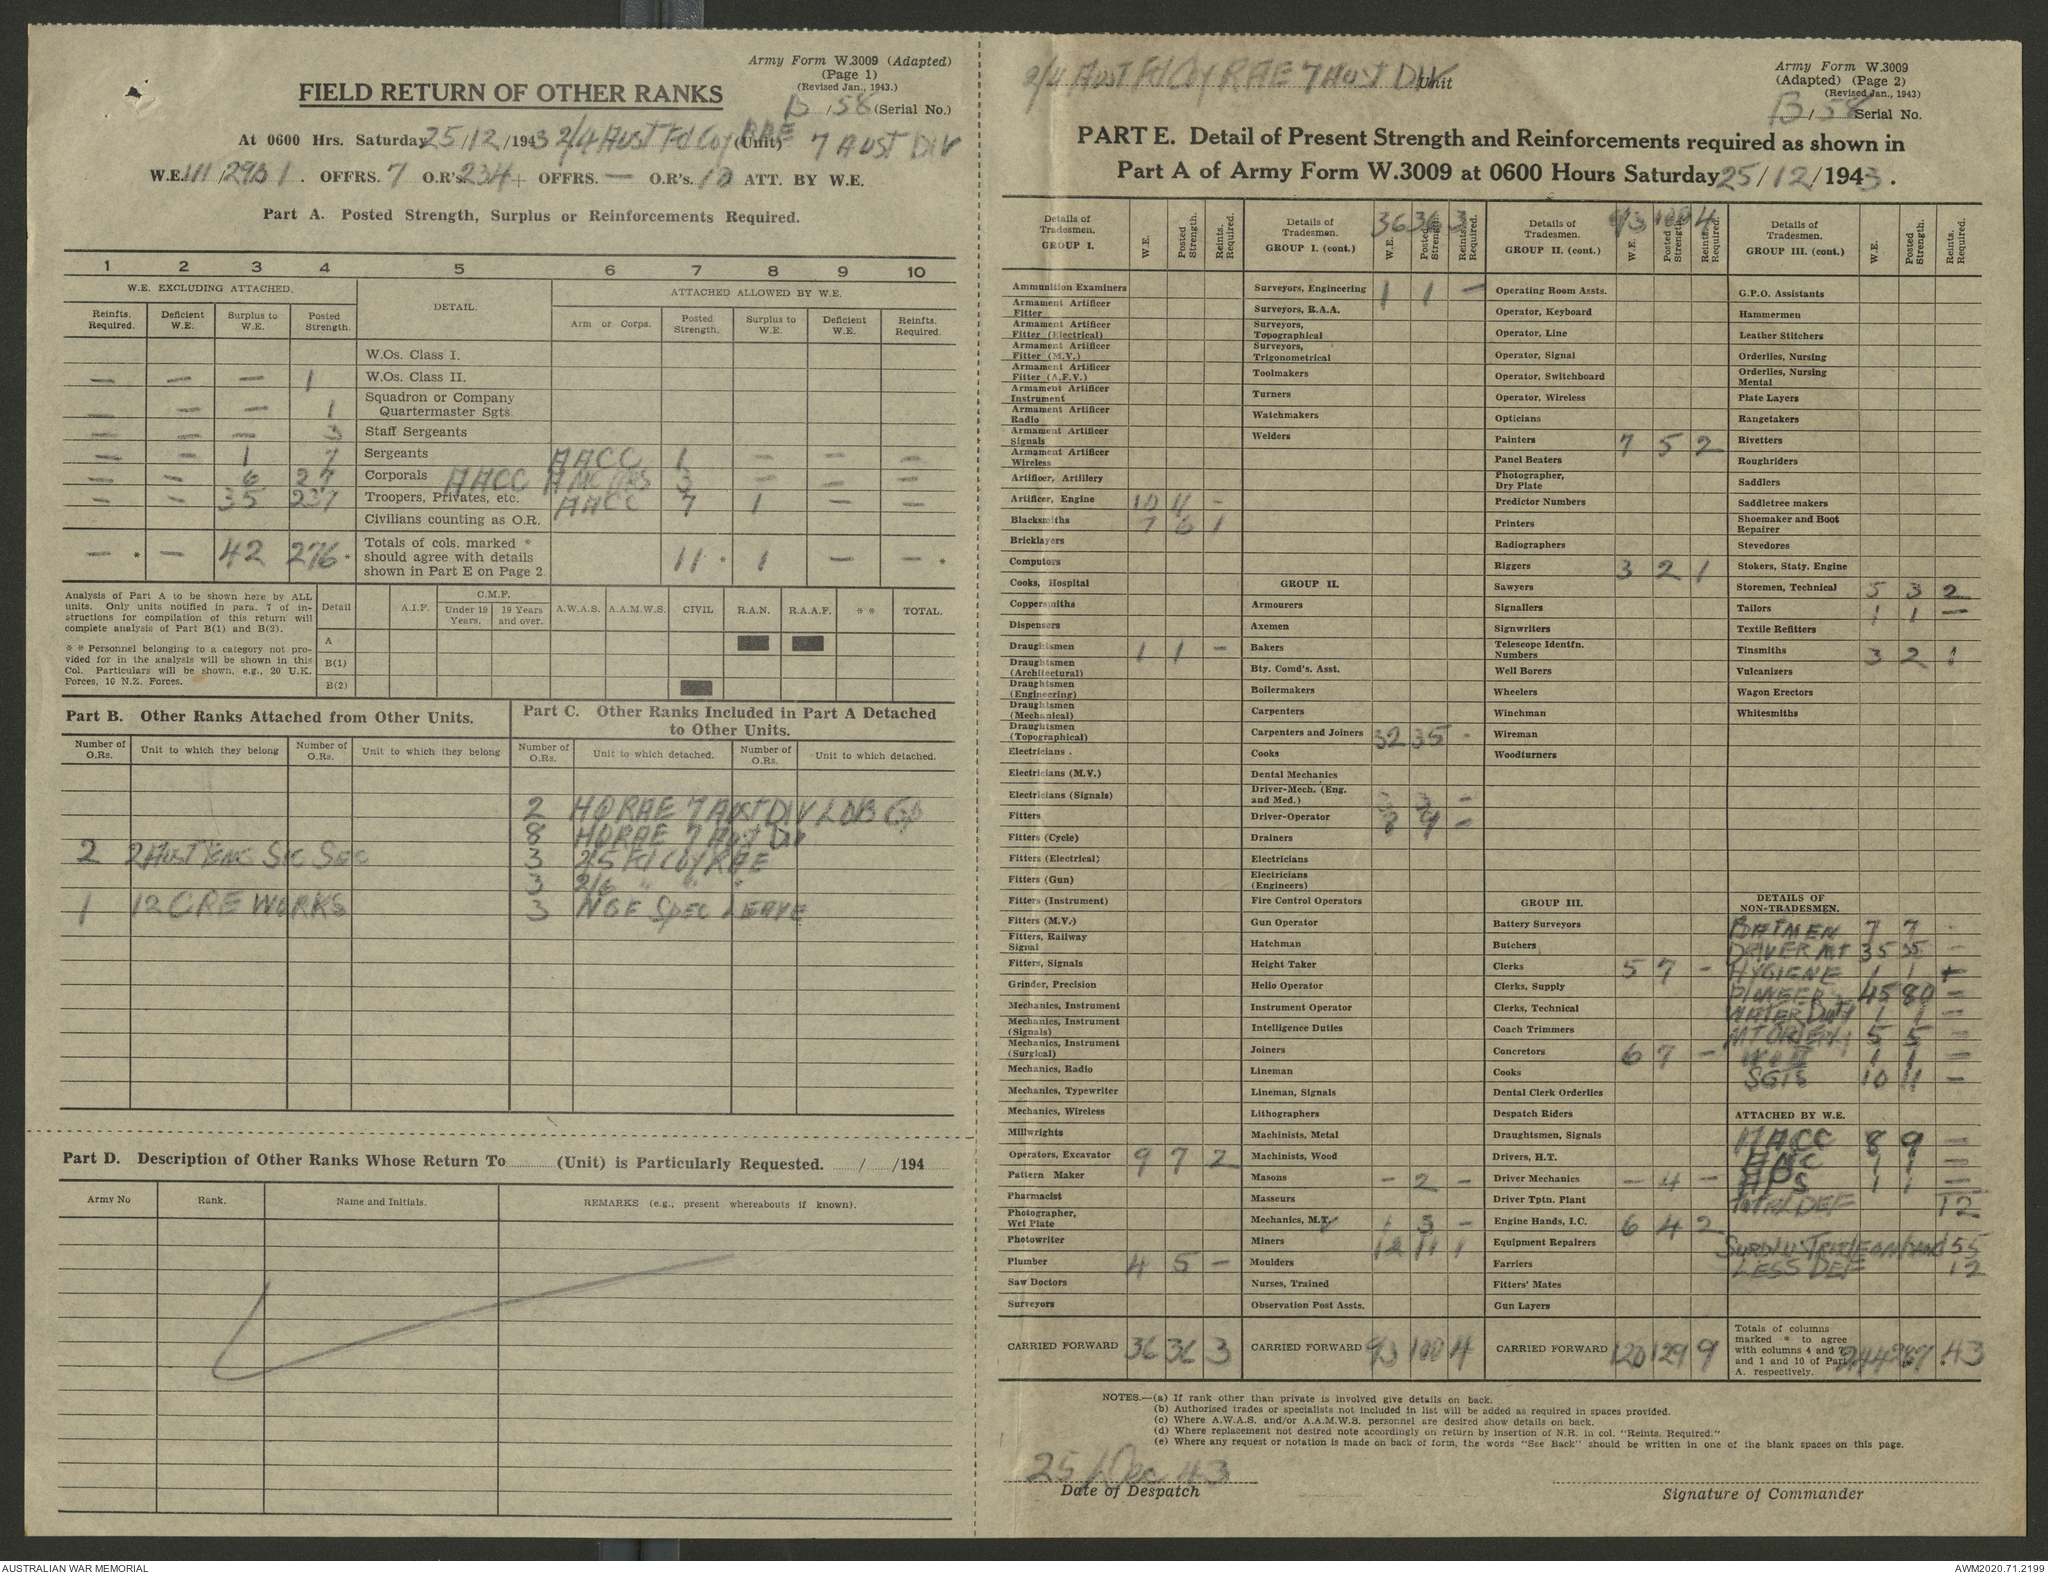 Army Form W.3009 (Adapted)
(Page 1)
(Revised Jan., 1943.)
FIELD RETURN OF OTHER RANKS
B / 58 (Serial No.)
At 0600 Hrs. Saturday 25/12/1943 2/4 Aust Fd Coy RAE (Unit) 7 Aust Div
W.E. III/29B/1. OFFRS. 7 O.R's. 234 + OFFRS. — O.R's. 10 ATT. BY W.E.
Part A. Posted Strength, Surplus or Reinforcements Required.
1 2 3 4 5 6 7 8 9 10
W.E. EXCLUDING ATTACHED. DETAIL. ATTACHED ALLOWED BY W.E.
Reinfts. Required. Deficient W.E. Surplus to W.E. Posted Strength. Arm or Corps. Posted Strength. Surplus to W.E. Deficient W.E. Reinfts. Required.
W.Os. Class I.
— — — 1 W.Os. Class II.
— — — 1 Squadron or Company Quartermaster Sgts.
— — — 3 Staff Sergeants
— — 1 7 Sergeants AACC 1 — — —
— — 6 27 Corporals AACC 3 — — —
— — 35 237 Troopers, Privates, etc. AACC 7 1 — —
Civilians counting as O.R.
— * — 42 276 * Totals of cols. marked * should agree with details shown in Part E on Page 2. 11 * 1 — — *
Analysis of Part A to be shown here by ALL units. Only units notified in para. 7 of instructions for compilation of this return will complete analysis of Part B(1) and B(2).
* * Personnel belonging to a category not provided for in the analysis will be shown in this Col. Particulars will be shown, e.g., 20 U.K. Forces, 10 N.Z. Forces.
Detail A.I.F. C.M.F. Under 19 Years. 19 Years and over. A.W.A.S. A.A.M.W.S. CIVIL R.A.N. R.A.A.F. * * TOTAL.
A
B(1)
B(2)
Part B. Other Ranks Attached from Other Units.
Number of O.Rs. Unit to which they belong Number of O.Rs. Unit to which they belong
2 2 Aust Sec
1 12 CRE WORKS
Part C. Other Ranks Included in Part A Detached to Other Units.
Number of O.Rs. Unit to which detached. Number of O.Rs. Unit to which detached.
2 HQ RAE 7 Aust Div LOB Gp
8 HQ RAE 7 Aust Div
3 2/5 Fd Coy RAE
3 2/6 " " "
3 NGF Spec Leave
Part D. Description of Other Ranks Whose Return To ......... (Unit) is Particularly Requested. ...../...../194.....
Army No Rank. Name and Initials. REMARKS (e.g., present whereabouts if known).
2/4 Aust Fd Coy RAE 7 Aust Div Unit
Army Form W.3009
(Adapted) (Page 2)
(Revised Jan., 1943)
B / 58 Serial No.
PART E. Detail of Present Strength and Reinforcements required as shown in
Part A of Army Form W.3009 at 0600 Hours Saturday 25/12/1943.
Details of Tradesmen. GROUP I. W.E. Posted Strength. Reints. Required.
Ammunition Examiners
Armament Artificer Fitter
Armament Artificer Fitter (Electrical)
Armament Artificer Fitter (M.V.)
Armament Artificer Fitter (A.F.V.)
Armament Artificer Instrument
Armament Artificer Radio
Armament Artificer Signals
Armament Artificer Wireless
Artificer, Artillery
Artificer, Engine 10 11 -
Blacksmiths 7 6 1
Bricklayers
Computors
Cooks, Hospital
Coppersmiths
Dispensers
Draughtsmen 1 1 -
Draughtsmen (Architectural)
Draughtsmen (Engineering)
Draughtsmen (Mechanical)
Draughtsmen (Topographical)
Electricians
Electricians (M.V.)
Electricians (Signals)
Fitters
Fitters (Cycle)
Fitters (Electrical)
Fitters (Gun)
Fitters (Instrument)
Fitters (M.V.)
Fitters, Railway Signal
Fitters, Signals
Grinder, Precision
Mechanics, Instrument
Mechanics, Instrument (Signals)
Mechanics, Instrument (Surgical)
Mechanics, Radio
Mechanics, Typewriter
Mechanics, Wireless
Millwrights
Operators, Excavator 9 7 2
Pattern Maker
Pharmacist
Photographer, Wet Plate
Photowriter
Plumber 4 5 -
Saw Doctors
Surveyors
CARRIED FORWARD 36 36 3
Details of Tradesmen. GROUP I. (cont.) W.E. Posted Strength. Reints. Required. 36 36 3
Surveyors, Engineering 1 1 -
Surveyors, R.A.A.
Surveyors, Topographical
Surveyors, Trigonometrical
Toolmakers
Turners
Watchmakers
Welders
GROUP II.
Armourers
Axemen
Bakers
Bty. Comd's. Asst.
Boilermakers
Carpenters
Carpenters and Joiners 32 35 -
Cooks
Dental Mechanics
Driver-Mech. (Eng. and Med.) -
Driver-Operator 8 9 -
Drainers
Electricians
Electricians (Engineers)
Fire Control Operators
Gun Operator
Hatchman
Height Taker
Helio Operator
Instrument Operator
Intelligence Duties
Joiners
Lineman
Lineman, Signals
Lithographers
Machinists, Metal
Machinists, Wood
Masons - 2 -
Masseurs
Mechanics, M.T. 1 3 -
Miners 12 11 1
Moulders
Nurses, Trained
Observation Post Assts.
CARRIED FORWARD 93 100 4
Details of Tradesmen. GROUP II. (cont.) W.E. Posted Strength. Reints. Required. 93 100 4
Operating Room Assts.
Operator, Keyboard
Operator, Line
Operator, Signal
Operator, Switchboard
Operator, Wireless
Opticians
Painters 7 5 2
Panel Beaters
Photographer, Dry Plate
Predictor Numbers
Printers
Radiographers
Riggers 3 2 1
Sawyers
Signallers
Signwriters
Telescope Identfn. Numbers
Well Borers
Wheelers
Winchman
Wireman
Woodturners
GROUP III.
Battery Surveyors
Butchers
Clerks 5 7 -
Clerks, Supply
Clerks, Technical
Coach Trimmers
Concretors 6 7 -
Cooks
Dental Clerk Orderlies
Despatch Riders
Draughtsmen, Signals
Drivers, H.T.
Driver Mechanics - 4 -
Driver Tptn. Plant
Engine Hands, I.C. 6 4 2
Equipment Repairers
Farriers
Fitters' Mates
Gun Layers
CARRIED FORWARD 120 129 9
Details of Tradesmen. GROUP III. (cont.) W.E. Posted Strength. Reints. Required.
G.P.O. Assistants
Hammermen
Leather Stitchers
Orderlies, Nursing
Orderlies, Nursing Mental
Plate Layers
Rangetakers
Rivetters
Roughriders
Saddlers
Saddletree makers
Shoemaker and Boot Repairer
Stevedores
Stokers, Staty. Engine
Storemen, Technical 5 3 2
Tailors 1 1 —
Textile Refitters
Tinsmiths 3 2 1
Vulcanizers
Wagon Erectors
Whitesmiths
DETAILS OF NON-TRADESMEN.
BATMEN 7 7 -
DRIVER MT 35 35 -
HYGIENE 1 1 +
PIONEER 45 80 -
WATER DUTY 1 1 -
MT ORDERLY 5 5 -
WO II 1 1 -
SGTS 10 11 -
ATTACHED BY W.E.
AACC 8 9 -
AMC 1 1 -
APS 1 1 -
TOTAL DEF 12
SURPLUS 55
LESS DEF 12
Totals of columns marked * to agree with columns 4 and 7 and 1 and 10 of Part A. respectively. 244 287 .43
NOTES.—(a) If rank other than private is involved give details on back.
(b) Authorised trades or specialists not included in list will be added as required in spaces provided.
(c) Where A.W.A.S. and/or A.A.M.W.S. personnel are desired show details on back.
(d) Where replacement not desired note accordingly on return by insertion of N.R. in col. "Reints. Required."
(e) Where any request or notation is made on back of form, the words "See Back" should be written in one of the blank spaces on this page.
25 / Dec 43
Date of Despatch
Signature of Commander
AUSTRALIAN WAR MEMORIAL
AWM2020.71.2199